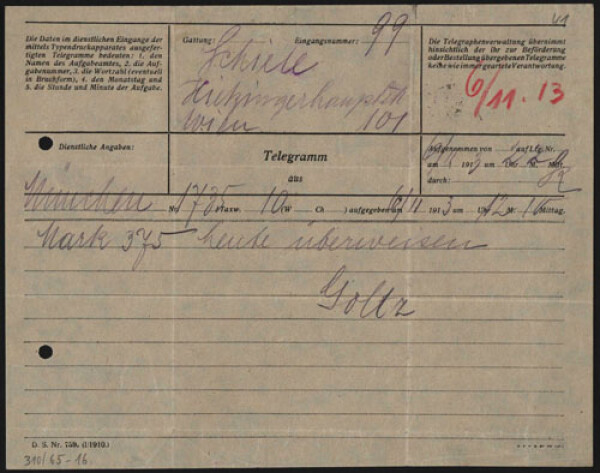 41
Die Daten im dienstlichen Eingange der
mittels Typendruckapparates ausgefer-
tigten Telegramme bedeuten: 1. den
Namen des Aufgabeamtes, 2. die Auf-
gabenummer, 3. die Wortzahl (eventuell
in Bruchform), 4. den Monatstag und
5. die Stunde und Minute der Aufgabe.
Gattung: Eingangsnummer: 99
Schiele
Hietzingerhauptstr
Wien 101
Die Telegraphenverwaltung übernimmt
hinsichtlich der ihr zur Beförderung
oder Bestellung übergebenen Telegramme
keine wie immer geartete Verantwortung.
6/11.13
Dienstliche Angaben:
Telegramm
aus
Aufgenommen von auf Ltg. Nr.
am 191 um Uhr M.
durch:
München Nr. 1735 Taxw. 10 (W Ch ) aufgegeben am 6/11 1913 um 12 Uhr M. 10 Mittag.
Mark 375 heute überweisen
Goltz
D. S. Nr. 759. (1/1910.)
310/65-16